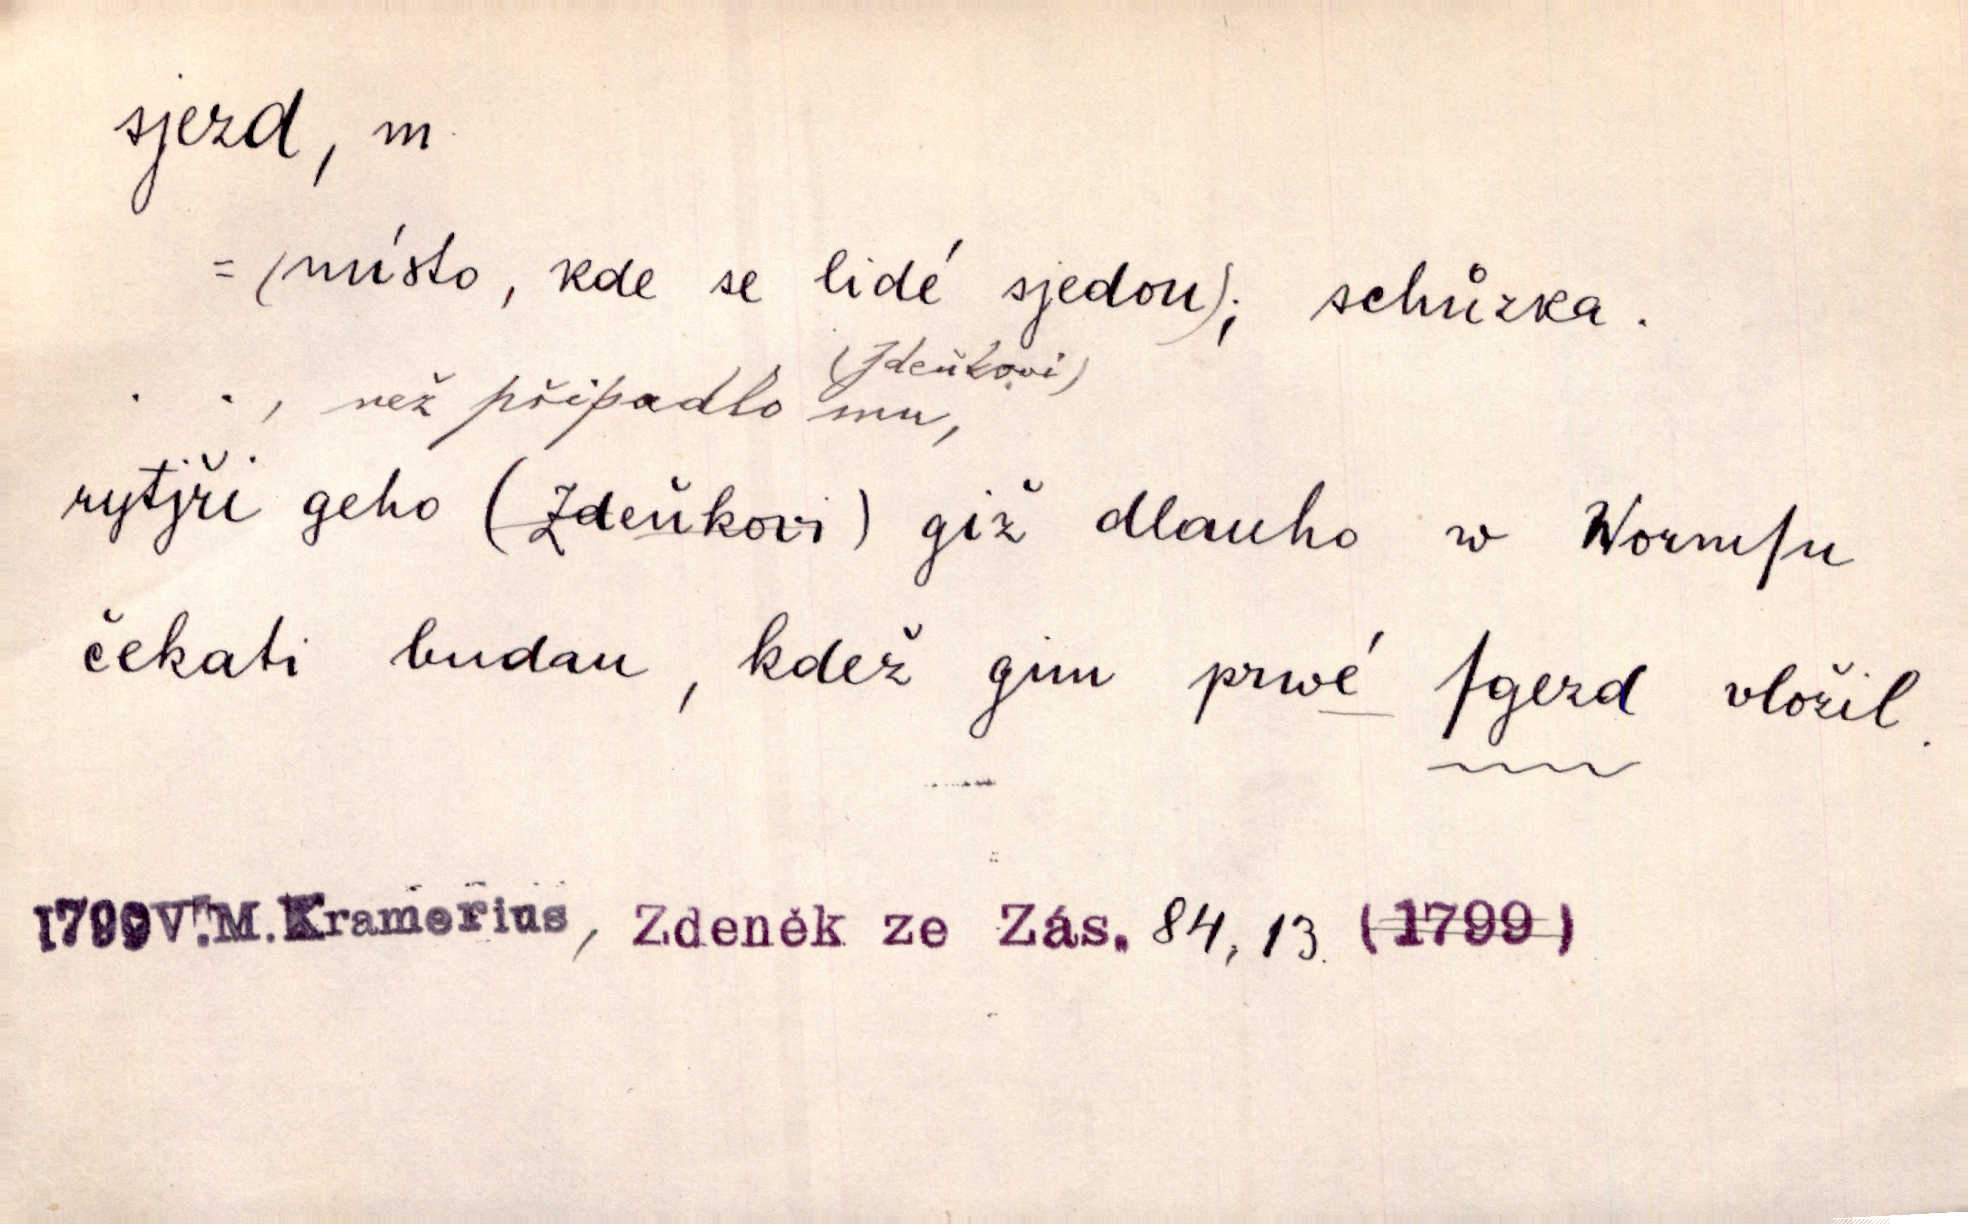 sjezd, m.
= (místo, kde se lidé sjedou); schůzka.
(Zdeňkovi)
. ., než připadlo mu,
rytjři geho (Zdeňkovi) giž dlauho w Wormſu
čekati budau, kdež gim prwé ſgezd vložil.
1799 V. M. Kramerius, Zdeněk ze Zás. 84, 13. (1799)